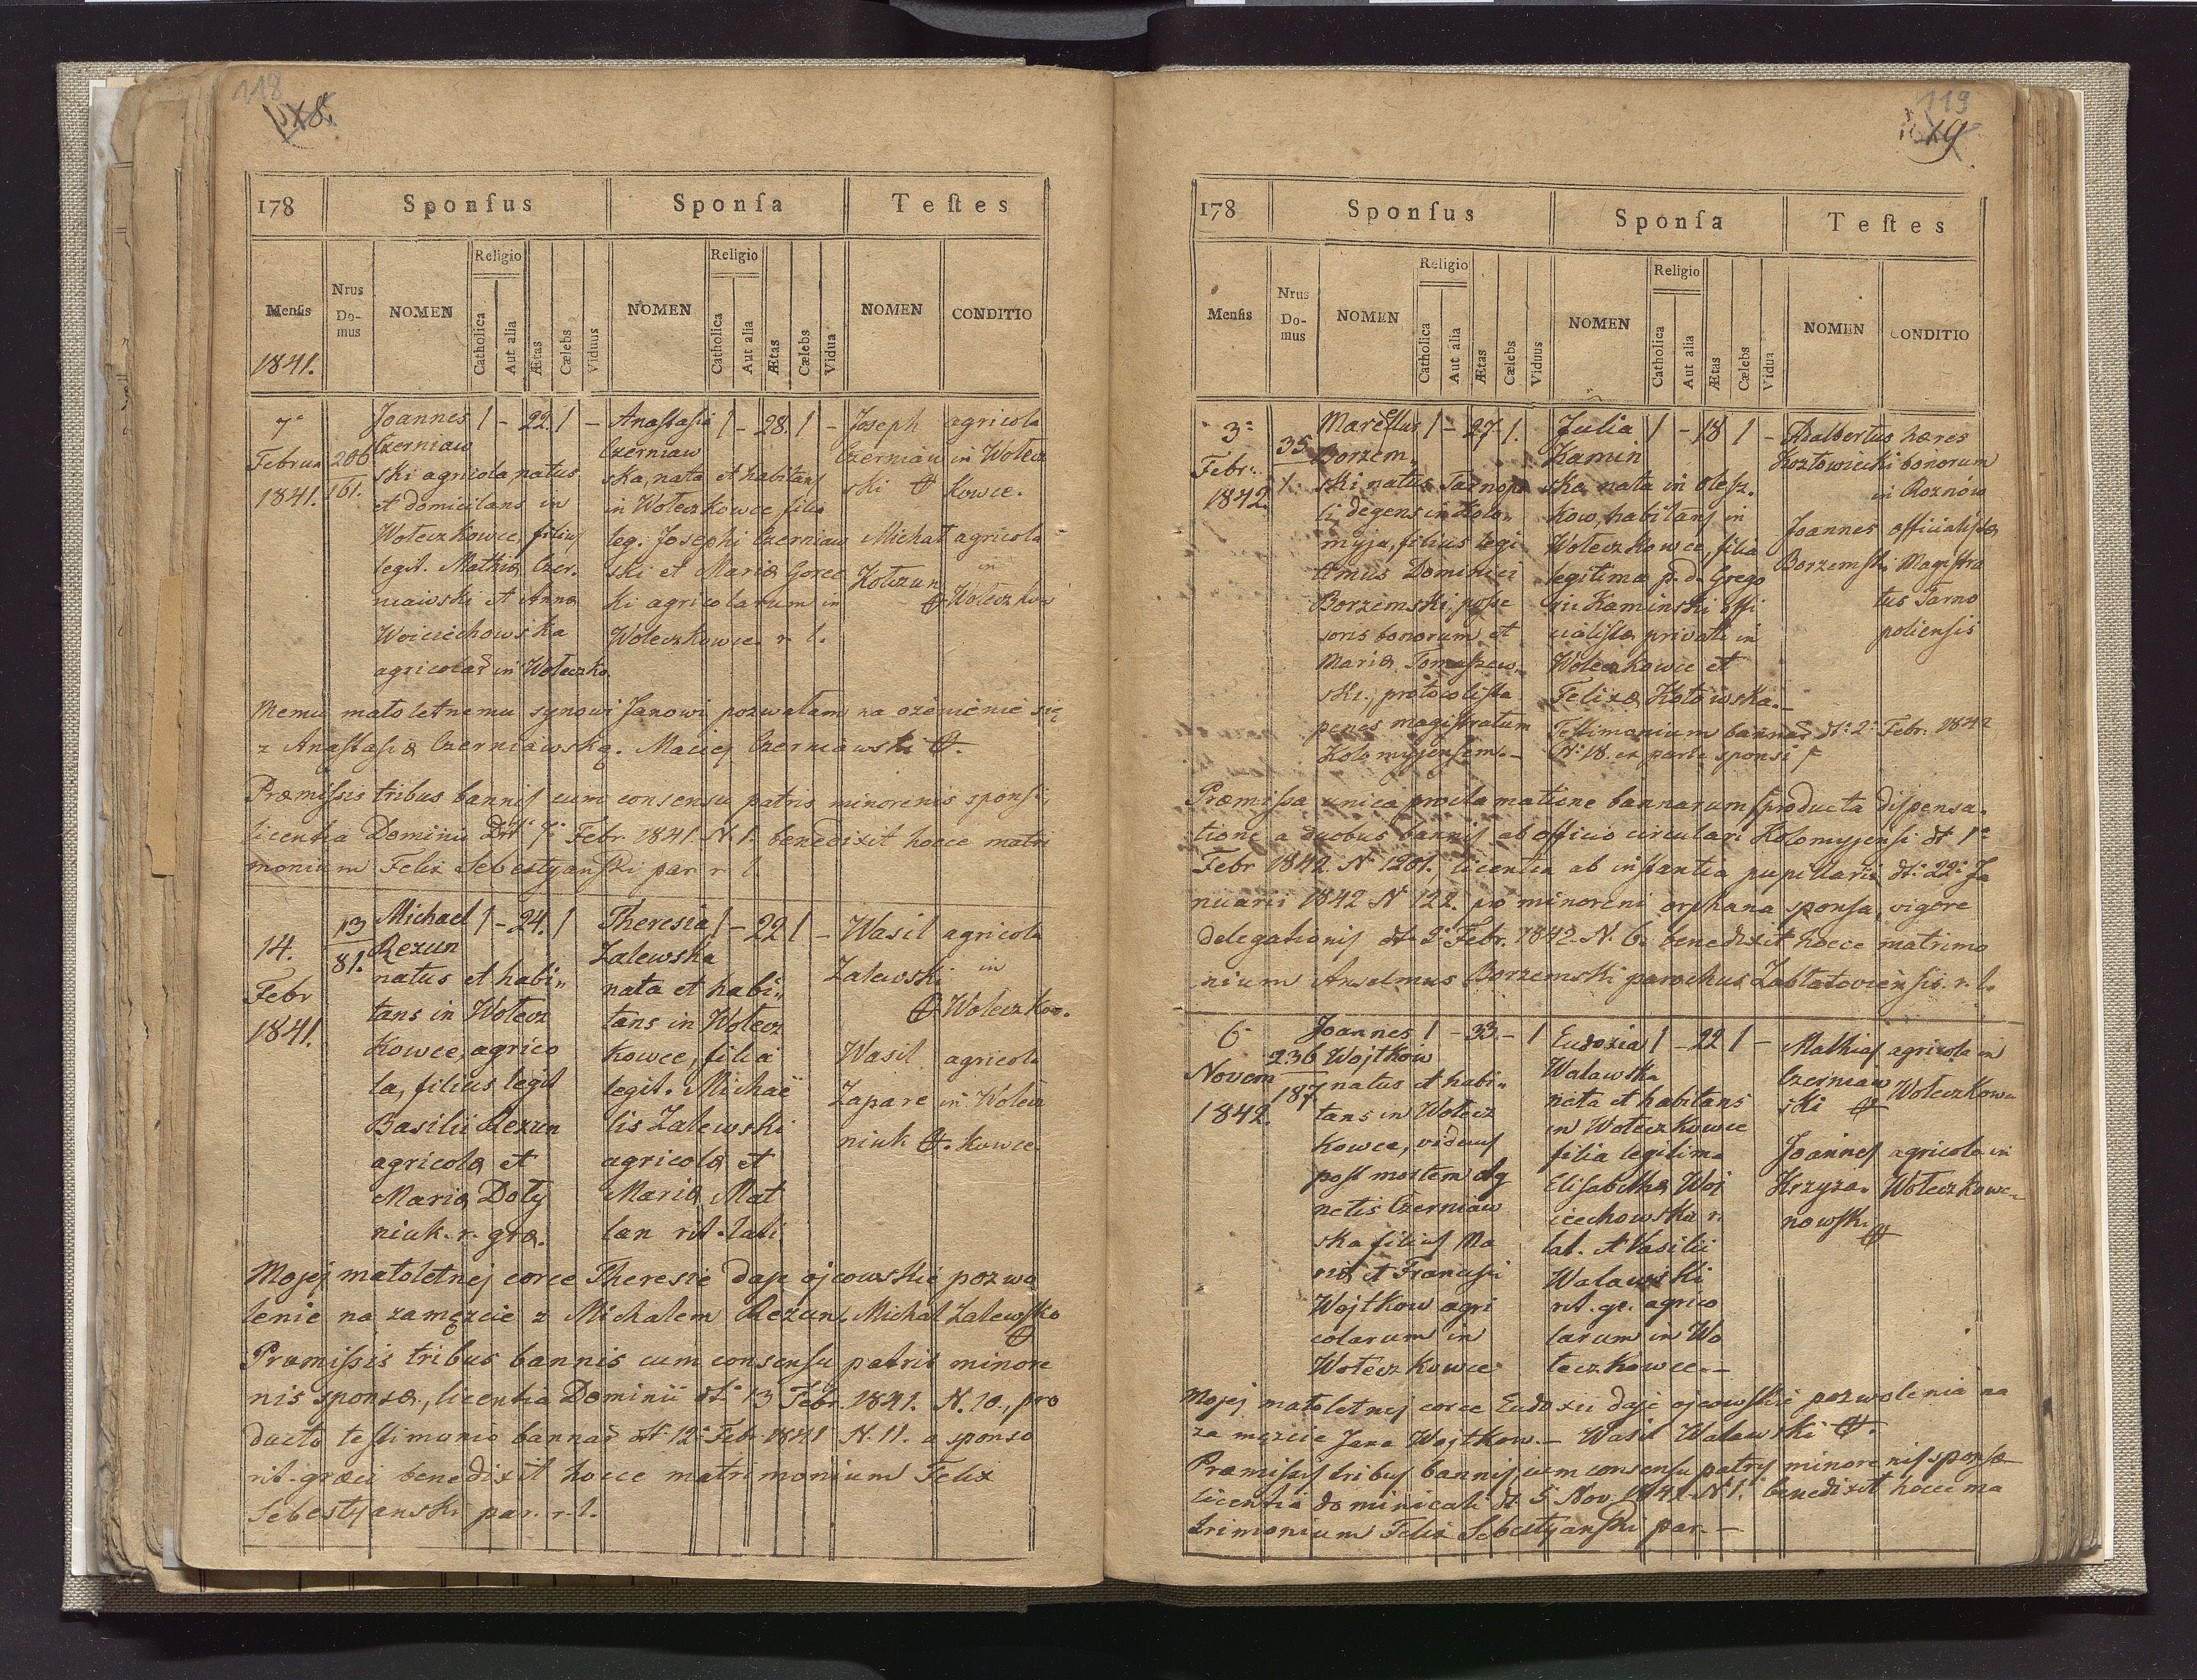 118
178 Sponsus Sponsa Testes
Mensis Nrus Domus NOMEN Religio Catholica Aut alia Ætas Cælebs Viduus NOMEN Religio Catholica Aut alia Ætas Cælebs Vidua NOMEN CONDITIO
1841.
7a
Februa
1841.
206
161.
Joannes 1 - 22. 1 -
Czerniaw
ski agricola, natus
et domicilans in
Woleczkowce, filius
legit. Mathiæ Czer.
niawski et Annæ
Woiciechowska
agricolar in Woleczko.
Anastasia 1 - 28. 1 -
Czerniaw
ska, nata et habitans
in Woleczkowce filia
leg. Josephi Czerniaw
ski et Mariæ Gorec
ki agricolarum in
Woleczkowce r. l.
Joseph agricola
Czerniaw in Wolecz
ski kowce.
Michał agricola
in
Kołczun
Woleczkow
Memu małoletnemu synowi Janowi pozwalam na ożenienie się
z Anastasią Czerniawską. Maciej Czerniawski
Præmissis tribus bannis cum consensu patris minorenis sponsi,
licentia Dominii Dtt 7 Febr. 1841. N. 1. benedixit hocce matri
monium Felix Sebestyanski par. r. l.
14.
Febr
1841.
13
81.
Michael 1 - 24. 1
Rezun
natus et habi„
tans in Wolecz
kowce, agrico
la, filius legit
Basilii Rezun
agricolæ et
Mariæ Doty
niuk. r. græ.
Theresia 1 - 22 1 -
Zalewska
nata et habi„
tans in Wolecz
kowce, filia
legit. Michaë
lis Zalewski
agricolæ et
Mariæ Mat
lan rit. lati
Wasil agricola
Zalewski in
Woleczkow.
Wasil agricola
Zapare in Wolecz
niuk kowce.
Mojej małoletnej corce Theresie daję ojcowskie pozwo
lenie na zamęzcie z Michałem Rezun. Michał Zalewsko
Præmissis tribus bannis cum consensu patris minore
nis sponsæ, licentia Dominii dt 13 Febr. 1841. N. 10., pro
ducto testimonio bannar dt 12 Febr 1841 N. 11. a sponso
rit. græci benedixit hocce matrimonium Felix
Sebestyanski par. r. l.
119
178 Sponsus Sponsa Testes
Mensis Nrus Domus NOMEN Religio Catholica Aut alia Ætas Cælebs Viduus NOMEN Religio Catholica Aut alia Ætas Cælebs Vidua NOMEN CONDITIO
3a
Febr.
1842.
35
Marcellus 1 - 27 1.
Borzem.
ski natus Tarnopo
li, degens in Kolo„
myja, filius legi
timus Dominici
Borzemski posse
soris bonorum et
Mariæ Tomaszew„
ski, protocolista
penes magistratum
Kolomyjensem. -
Julia 1 - 18 1 -
Kamin
ska nata in Olesz.
kow, habitans in
Woleczkowce, filia
legitima p. d. Grego
rii Kaminski offi
cialistæ privati in
Woleczkowce et
Felixæ Kotowska. -
Testimonium bannar dt 2 Febr. 1842
N. 18. ex parte sponsi
Adalbertus hæres
Kozłowiecki bonorum
in Roznów
Joannes officialista
Borzemski Magistra
tus Tarno
poliensis
Præmissa unica proclamatione bannarum, producta dispensa.
tione a duobus bannis ab officio circulari Kolomyjensi dt 1a
Febr 1842. N. 1201. licentia ab instantia pupillari dt 22 Ja
nuarii 1842 N 122. pro minoreni orphana sponsa, vigore
delegationis dt 3 Febr. 1842. N. 6. benedixit hocce matrimo
nium Anselmus Borzemski parochus Zabłatoviensis. r. l.
6
Novem
1842.
236
187
Joannes 1 - 33 - 1
Wojtkow
natus et habi„
tans in Wolecz
kowce, viduus
post mortem Ag
netis Czerniaw
ska filius Ma
riæ et Francisci
Wojtkow agri
colarum in
Woleczkowce
Eudoxia 1 - 22 1 -
Walawska
nata et habitans
in Woleczkowce
filia legitima
Elisabethæ Woj
ciechowska r.
lat. et Vasilii
Walawski
rit. gr. agrico
larum in Wo
leczkowce. -
Mathias agricola in
Czerniaw Woleczkowce
ski
Joannes agricola in
Krzyża. Woleczkowce
nowski
Mojej małoletnej corce Eudoxii daję ojcowskie pozwolenia na
za męzcie Jana Wojtkow. - Wasil Walawski
Præmissis tribus bannis, cum consensu patris minorenis sponsæ
licentia dominicali dt 5 Nov. 1842 N 1. benedixit hocce ma
trimonium Felix Sebestyanski par. -